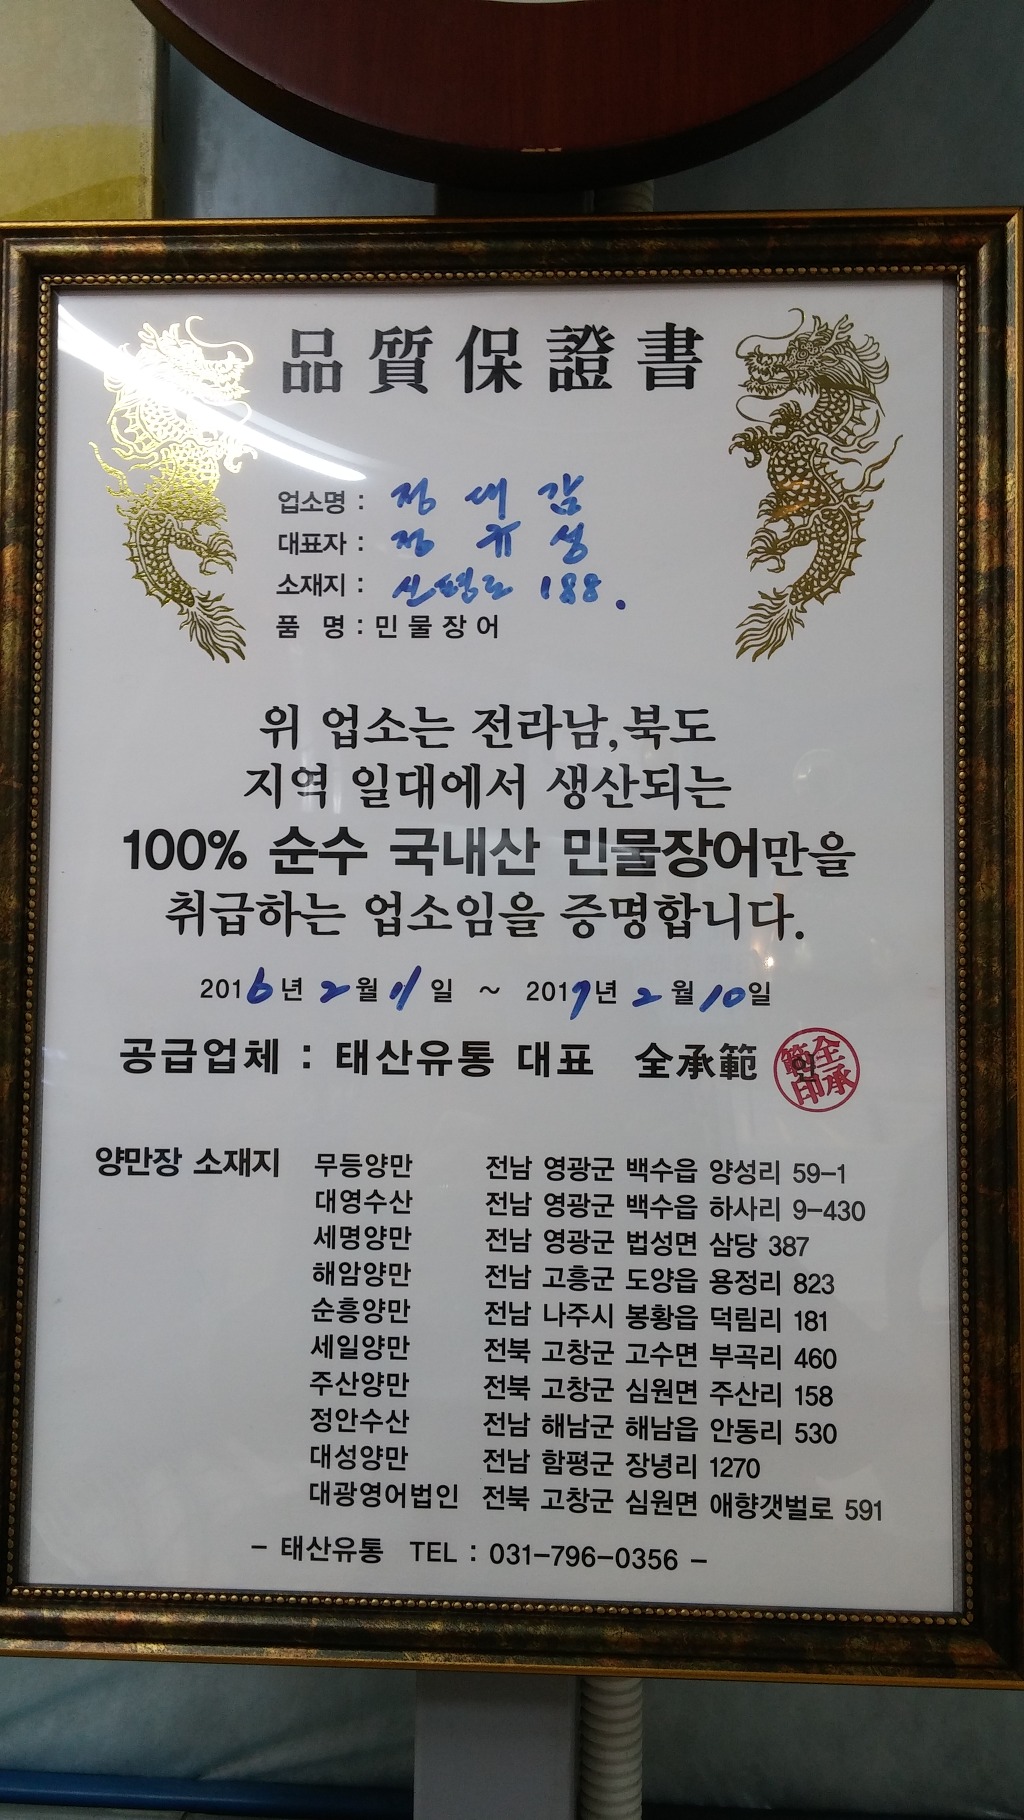 品質保證書
업소명 : 정대감
대표자 : 정유성
소재지 : 신평로 188.
품 명 : 민물장어
위 업소는 전라남,북도
지역 일대에서 생산되는
100% 순수 국내산 민물장어만을
취급하는 업소임을 증명합니다.
2016년 2월 11일 ~ 2017년 2월 10일
공급업체 : 태산유통 대표 全承範 인
全承範印
양만장 소재지 무등양만 전남 영광군 백수읍 양성리 59-1
대영수산 전남 영광군 백수읍 하사리 9-430
세명양만 전남 영광군 법성면 삼당 387
해암양만 전남 고흥군 도양읍 용정리 823
순흥양만 전남 나주시 봉황읍 덕림리 181
세일양만 전북 고창군 고수면 부곡리 460
주산양만 전북 고창군 심원면 주산리 158
정안수산 전남 해남군 해남읍 안동리 530
대성양만 전남 함평군 장녕리 1270
대광영어법인 전북 고창군 심원면 애향갯벌로 591
- 태산유통 TEL : 031-796-0356 -